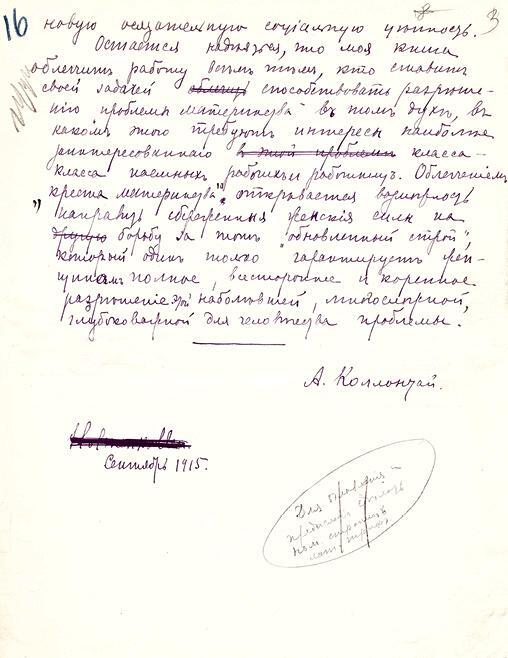 16 3
новую осязательную социальную ценность.
Остается надѣяться, что моя книга
облегчитъ работу всѣмъ тѣмъ, кто ставитъ
своей задачей способствовать разрѣше-
нію проблемы материнства въ томъ духѣ, въ
какомъ этого требуютъ интересы наиболѣе
заинтересованнаго в этой проблемѣ класса —
класса наемныхъ рабочихъ и работницъ. Облегченіемъ
„креста материнства" открывается возможность
направить сбереженныя женскія силы на
другую борьбу за тотъ „обновленный строй",
который одинъ только гарантируетъ жен-
щинамъ полное, всестороннее и коренное
разрѣшеніе этой наболѣвшей, многосторонней,
глубоковажной для человѣчества проблемы.
А. Коллонтай.
Сентябрь 1915.
Для